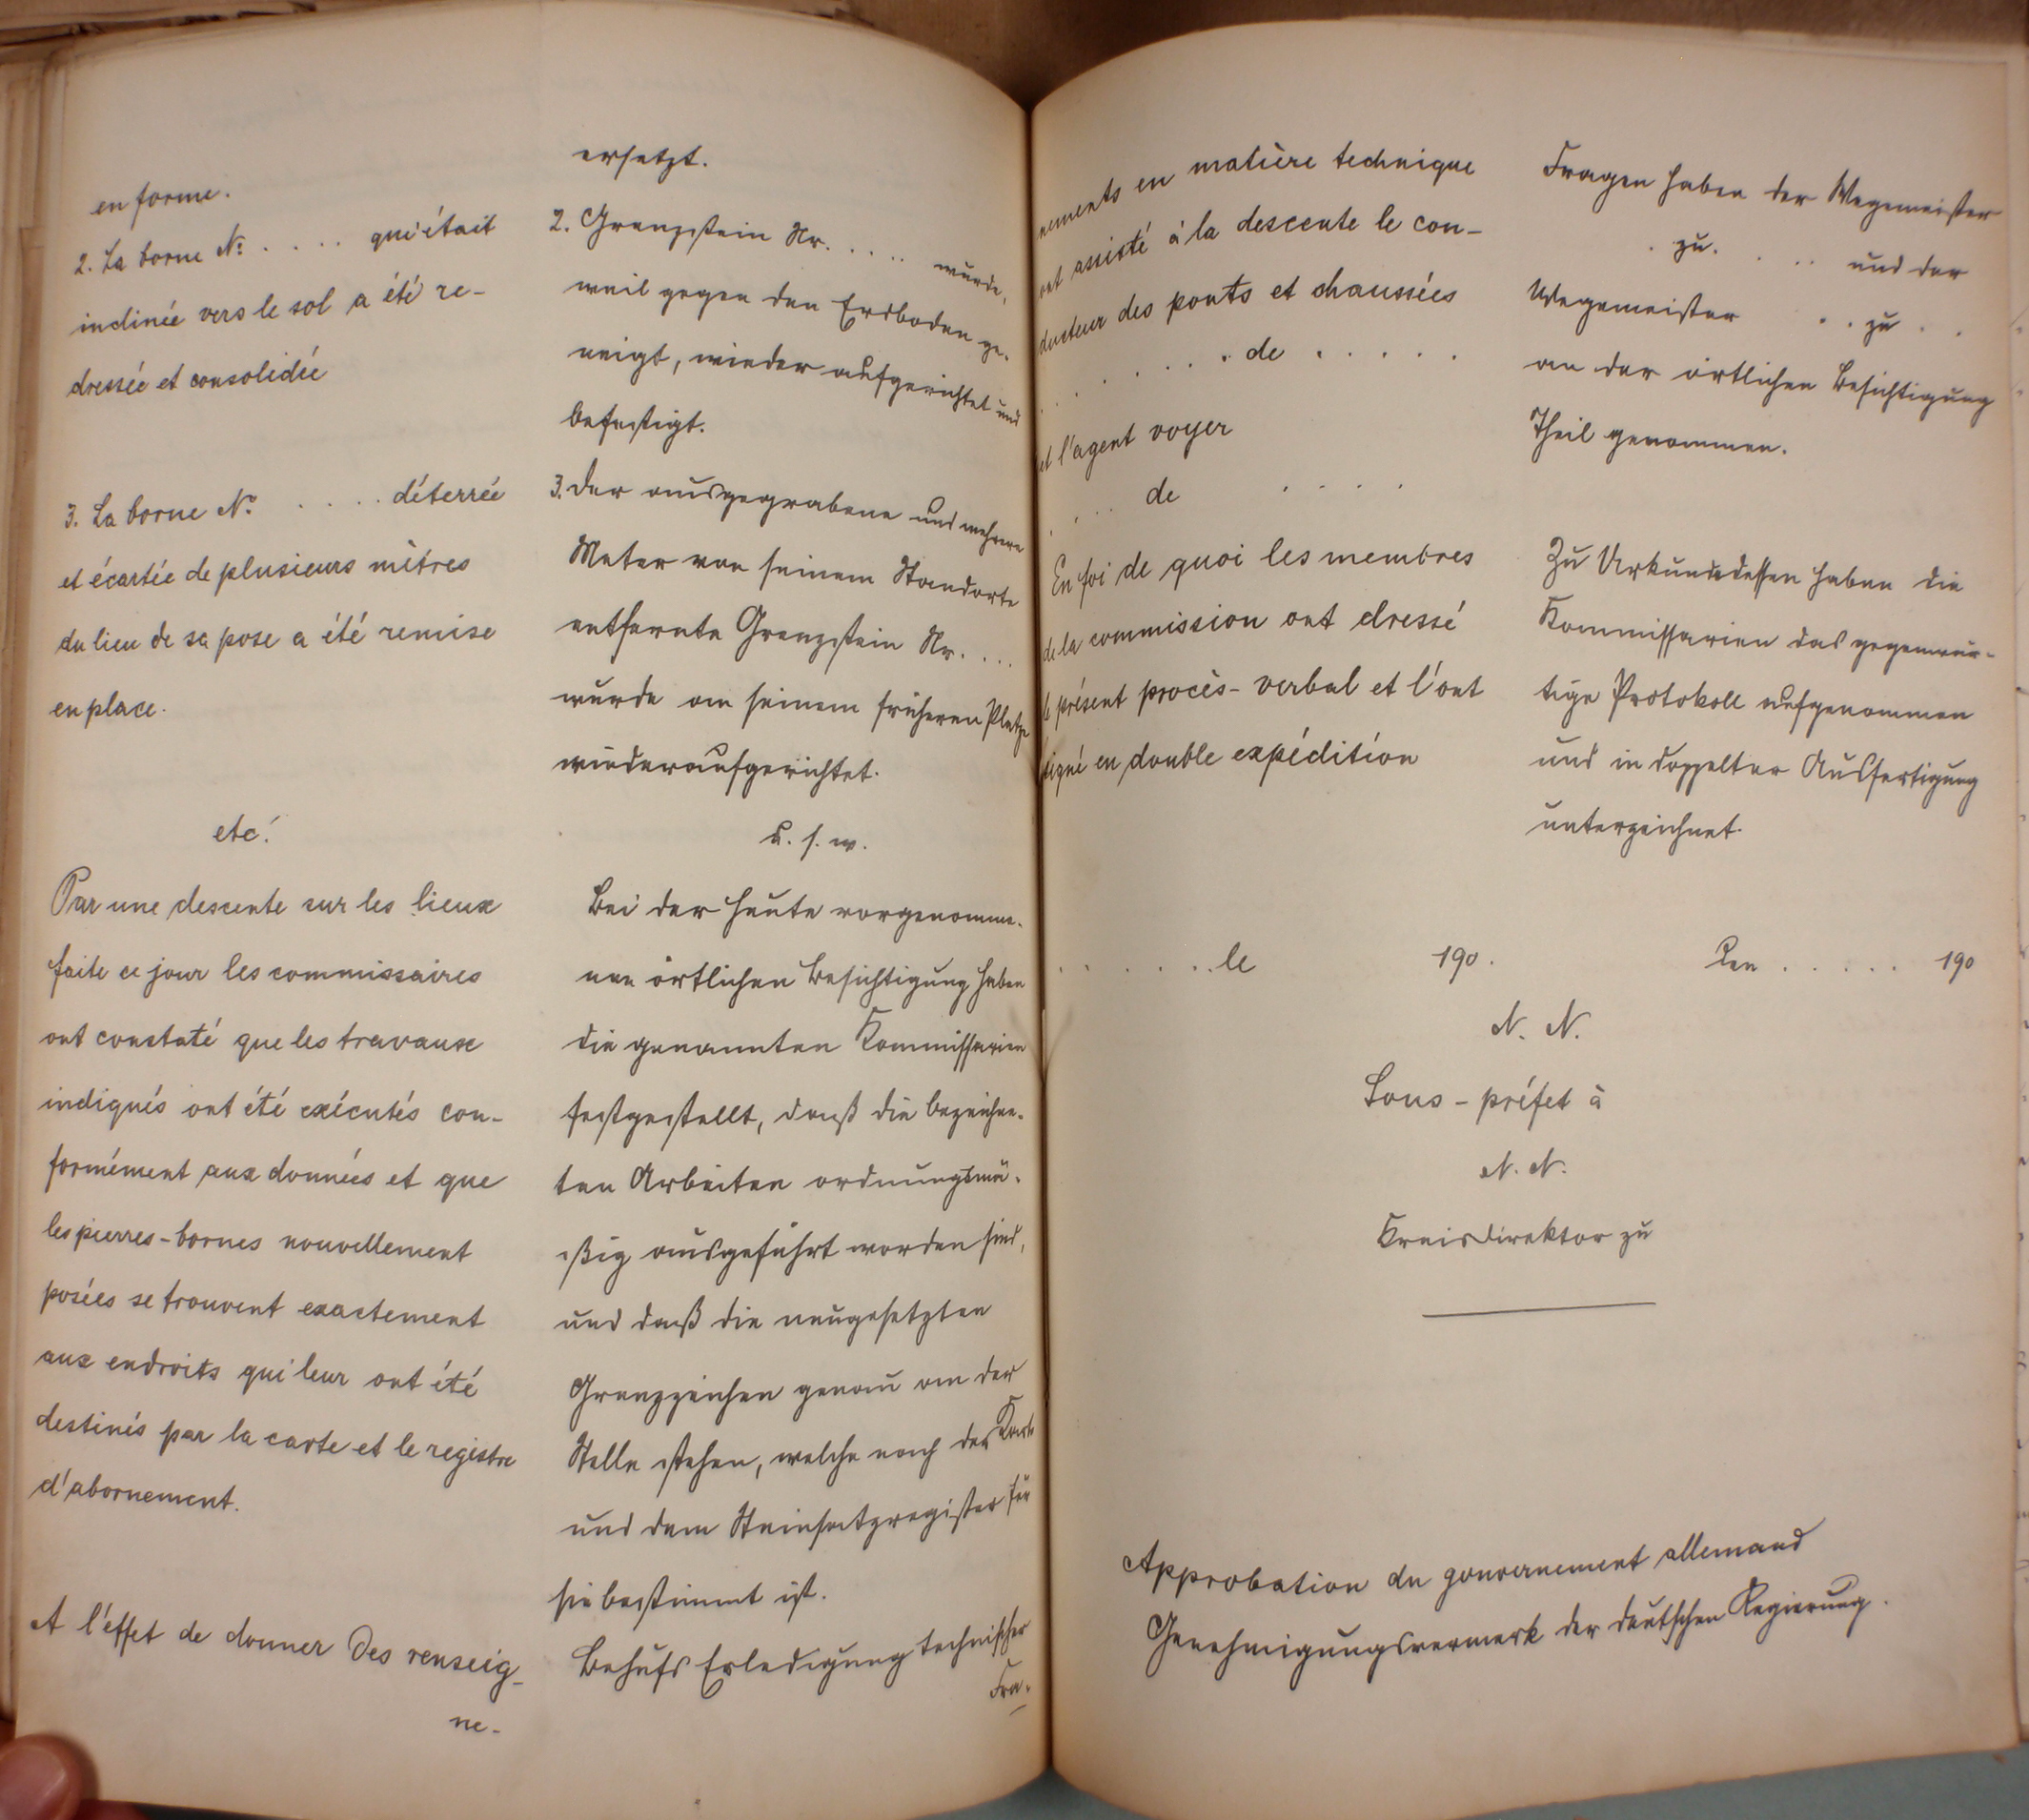 en forme.
2. La borne No. . . . . qui était
inclinée vers le sol a été re-
dressée et consolidée
3. La borne No. . . . . déterrée
et écartée de plusieurs mètres
du lieu de sa pose a été remise
en place.
etc.
Par une descente sur les lieux
faite ce jour les commissaires
ont constaté que les travaux
indiqués ont été exécutés con-
formément aux données et que
les pierres-bornes nouvellement
posées se trouvent exactement
aux endroits qui leur ont été
destinés par la carte et le registre
d'abornement.
A l'effet de donner des renseig-
ne-
ersetzt.
2. Grenzstein Nr. . . . . wurde,
weil gegen den Erdboden ge-
neigt, wieder aufgerichtet und
befestigt.
3. Der ausgegrabene und mehrere
Meter von seinem Standorte
entfernte Grenzstein Nr. . . .
wurde an seinem früheren Platze
wiederaufgerichtet.
u. s. w.
Bei der heute vorgenomme-
nen örtlichen Besichtigung haben
die genannten Kommissarien
festgestellt, daß die bezeichne-
ten Arbeiten ordnungsmä-
ßig ausgeführt worden sind,
und daß die neugesetzten
Grenzzeichen genau an der
Stelle stehen, welche nach der Karte
und dem Steinsatzregister für
sie bestimmt ist.
Behufs Erledigung technischer
Fra-
nements en matière technique
ont assisté à la descente le con-
ducteur des ponts et chaussées
. . . . . . de . . . . .
et l'agent voyer . . . .
. . . de
En foi de quoi les membres
de la commission ont dressé
le présent procès-verbal et l'ont
signé en double expédition
. . . . . . le 190.
Fragen haben der Wegemeister
. zu . . . . und der
Wegemeister . . zu . .
an der örtlichen Besichtigung
Theil genommen.
Zu Urkunddessen haben die
Kommissarien das gegenwär-
tige Protokoll aufgenommen
und in doppelter Ausfertigung
unterzeichnet.
Den . . . . . 190
N. N.
Sous-préfet à
N. N.
Kreisdirektor zu
Approbation du gouvernement allemand
Genehmigungsvermerk der deutschen Regierung.